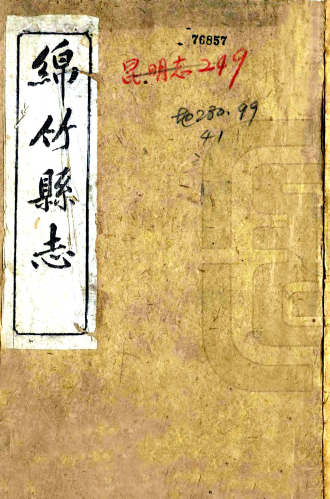 76857
昆明志249
地280.99
41
綿竹縣志